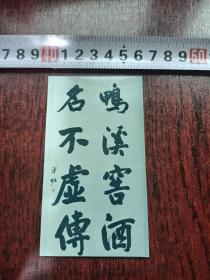 鴨溪窖酒
名不虛傳
7 8 9 40 1 2 3 4 5 6 7 8 9 50